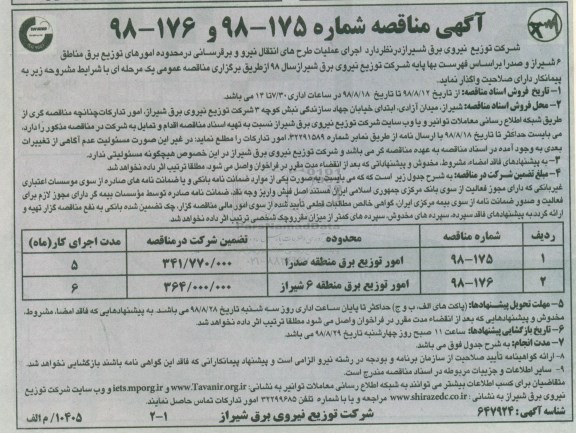 آگهی مناقصه شماره ۱۷۵-۹۸ و ۱۷۶-۹۸
شرکت توزیع نیروی برق شیراز در نظر دارد اجرای عملیات طرح های انتقال نیرو و برقرسانی در محدوده امورهای توزیع برق مناطق
۶ شیراز و صدرا بر اساس فهرست بها پایه شرکت توزیع نیروی برق شیراز سال ۹۸ از طریق برگزاری مناقصه عمومی یک مرحله ای با شرایط مشروحه زیر به
پیمانکار دارای صلاحیت واگذار نماید.
۱- تاریخ فروش اسناد مناقصه: از تاریخ ۹۸/۸/۱۲ تا تاریخ ۹۸/۸/۱۸ در ساعات اداری ۷/۳۰ تا ۱۳ می باشد.
۲- محل فروش اسناد مناقصه: شیراز، میدان آزادی، ابتدای خیابان جهاد سازندگی نبش کوچه ۳ شرکت توزیع نیروی برق شیراز، امور تدارکات چنانچه مناقصه گری از
طریق شبکه اطلاع رسانی معاملات توانیر و یا وب سایت شرکت توزیع نیروی برق شیراز نسبت به تهیه اسناد مناقصه اقدام و تمایل به شرکت در مناقصه مذکور را دارد،
می بایست حداکثر تا تاریخ ۹۸/۸/۱۸ با ارسال نامه از طریق نمابر شماره ۳۲۲۹۱۵۸۹ امور تدارکات را مطلع نماید، در غیر این صورت مسئولیت عدم آگاهی از تغییرات
بعدی به وجود آمده در اسناد مناقصه به عهده مناقصه گر می باشد و شرکت توزیع نیروی برق شیراز در این خصوص هیچگونه مسئولیتی ندارد.
۳- به پیشنهادهای فاقد امضاء، مشروط، مخدوش و پیشنهاداتی که بعد از انقضاء مدت مقرر در فراخوان واصل می شود، مطلقا ترتیب اثر داده نخواهد شد.
۴- مبلغ تضمین شرکت در مناقصه: به شرح جدول زیر است که که می بایست به صورت یکی از موارد ضمانت نامه بانکی و یا ضمانت نامه های صادره از سوی موسسات اعتباری
غیربانکی که دارای مجوز فعالیت از سوی بانک مرکزی جمهوری اسلامی ایران هستند، اصل فیش واریز وجه نقد، ضمانت نامه صادره توسط مؤسسات بیمه گر دارای مجوز لازم برای
فعالیت و صدور ضمانت نامه از سوی بیمه مرکزی ایران، گواهی خالص مطالبات قطعی تأیید شده از سوی امور مالی مناقصه گزار، چک تضمین شده بانکی به نفع مناقصه گزار تهیه و
ارائه گردد به پیشنهادهای فاقد سپرده، سپرده های مخدوش، سپرده های کمتر از میزان مقرر و چک شخصی ترتیب اثر داده نخواهد شد.
ردیف شماره مناقصه محدوده تضمین شرکت در مناقصه مدت اجرای کار (ماه)
۱ ۹۸-۱۷۵ امور توزیع برق منطقه صدرا ۳۴۱/۷۷۰/۰۰۰ ۵
۲ ۹۸-۱۷۶ امور توزیع برق منطقه ۶ شیراز ۳۶۴/۰۰۰/۰۰۰ ۶
۵- مهلت تحویل پیشنهادها: (پاکت های الف، ب و ج) حداکثر تا پایان ساعت اداری روز سه شنبه تاریخ ۹۸/۸/۲۸ می باشد. به پیشنهادهایی که فاقد امضا، مشروط،
مخدوش و پیشنهادهایی که بعد از انقضاء مدت مقرر در فراخوان واصل می شود مطلقا ترتیب اثر داده نخواهد شد.
۶- تاریخ بازگشایی پیشنهادها: ساعت ۱۱ صبح روز چهارشنبه تاریخ ۹۸/۸/۲۹ می باشد.
۷- مدت انجام: به شرح جدول فوق می باشد.
۸- ارائه گواهینامه تأیید صلاحیت از سازمان برنامه و بودجه در رشته نیرو الزامی است و پیشنهاد پیمانکارانی که فاقد این گواهی نامه باشند بازگشایی نخواهد شد.
۹- سایر اطلاعات و جزییات مربوطه در اسناد مناقصه مندرج است.
متقاضیان برای کسب اطلاعات بیشتر می توانند به شبکه اطلاع رسانی معاملات توانیر به نشانی: www.Tavanir.org.ir و iets.mporg.ir و وب سایت شرکت توزیع
نیروی برق شیراز به نشانی: www.shirazedc.co.ir مراجعه و یا با شماره تلفن ۳۲۲۹۹۶۸۵ امور تدارکات تماس حاصل نمایند.
شناسه آگهی: ۶۴۷۹۲۴ شرکت توزیع نیروی برق شیراز ۲-۱ ۱۰۴۰۵/م الف